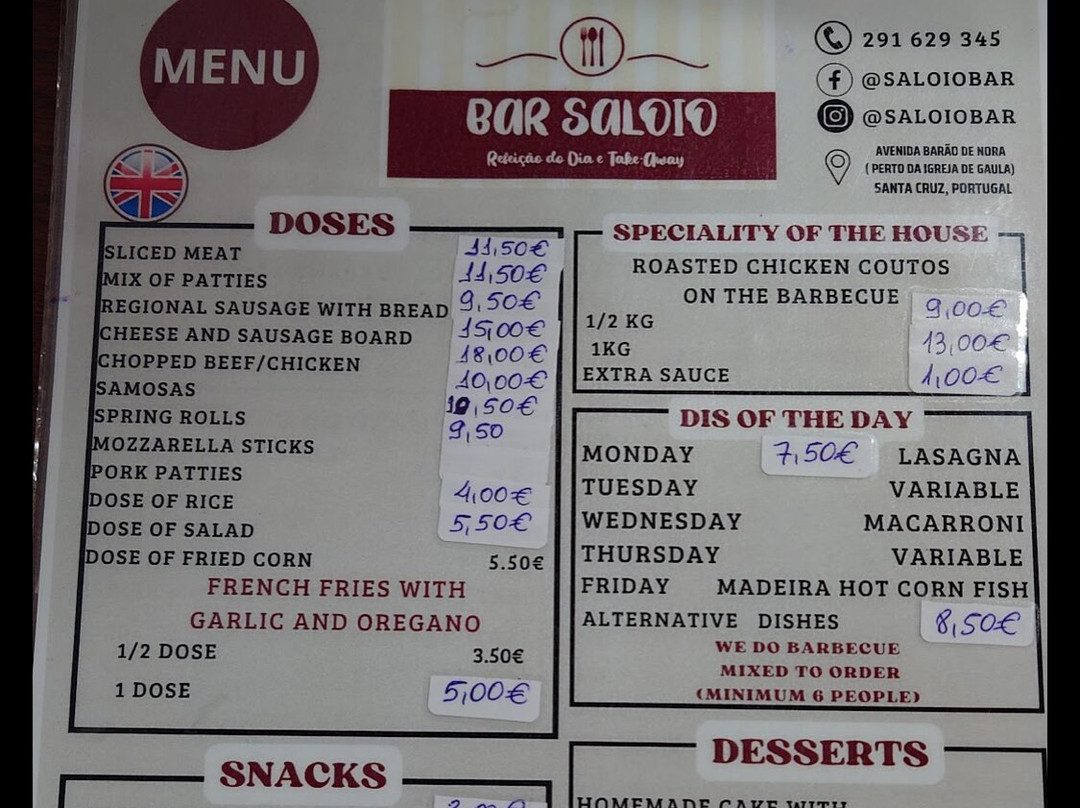 MENU
BAR SALOIO
Refeição do Dia e Take-Away
291 629 345
@SALOIOBAR
@SALOIOBAR
AVENIDA BARÃO DE NORA
( PERTO DA IGREJA DE GAULA)
SANTA CRUZ, PORTUGAL
DOSES
SLICED MEAT 11,50€
MIX OF PATTIES 11,50€
REGIONAL SAUSAGE WITH BREAD 9,50€
CHEESE AND SAUSAGE BOARD 15,00€
CHOPPED BEEF/CHICKEN 18,00€
SAMOSAS 10,00€
SPRING ROLLS 10,50€
MOZZARELLA STICKS 9,50
PORK PATTIES
DOSE OF RICE 4,00€
DOSE OF SALAD 5,50€
DOSE OF FRIED CORN 5.50€
FRENCH FRIES WITH
GARLIC AND OREGANO
1/2 DOSE 3.50€
1 DOSE 5,00€
SNACKS
SPECIALITY OF THE HOUSE
ROASTED CHICKEN COUTOS
ON THE BARBECUE
1/2 KG 9,00€
1KG 13,00€
EXTRA SAUCE 1,00€
DIS OF THE DAY
MONDAY 7,50€ LASAGNA
TUESDAY VARIABLE
WEDNESDAY MACARRONI
THURSDAY VARIABLE
FRIDAY MADEIRA HOT CORN FISH
ALTERNATIVE DISHES 8,50€
WE DO BARBECUE
MIXED TO ORDER
(MINIMUM 6 PEOPLE)
DESSERTS
HOMEMADE CAKE WITH